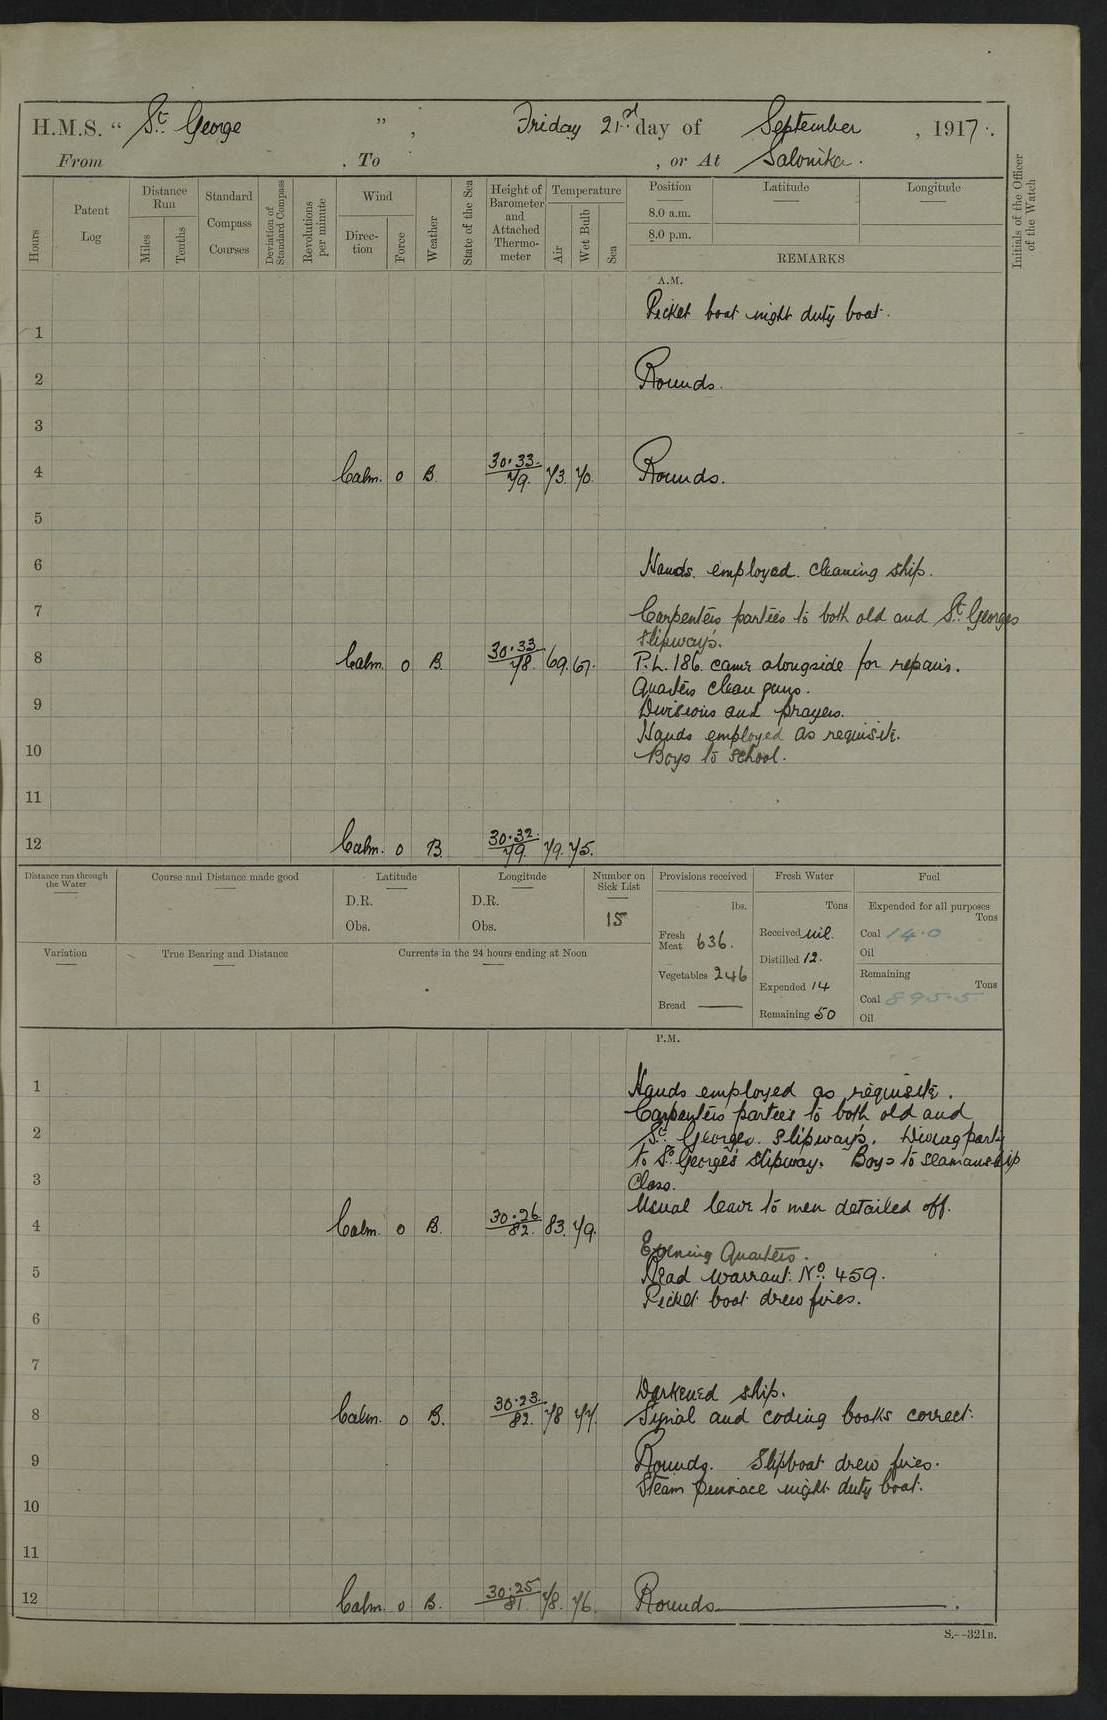 H.M.S. " St George " , Friday 21st day of September , 1917.
From , To , or At Salonika.
Hours
Patent Log
Distance Run
Miles
Tenths
Standard Compass Courses
Deviation of Standard Compass
Revolutions per minute
Wind
Direction
Force
Weather
State of the Sea
Height of Barometer and Attached Thermometer
Temperature
Air
Wet Bulb
Sea
Position
Latitude
Longitude
8.0 a.m.
8.0 p.m.
REMARKS
Initials of the Officer of the Watch
A.M.
Picket boat night duty boat.
1
2 Rounds.
3
4 Calm. 0 B. 30.33. 79. 73. 70. Rounds.
5
6 Hands employed cleaning ship.
7 Carpenters parties to both old and St Georges
slipways.
8 Calm. 0 B. 30.33 78. 69. 67. P.L. 186. came alongside for repairs.
Quarters clean guns.
9 Divisions and prayers.
Hands employed as requisite.
10 Boys to school.
11
12 Calm. 0 B. 30.32. 79. 79. 75.
Distance run through the Water
Course and Distance made good
Latitude
D.R.
Obs.
Longitude
D.R.
Obs.
Number on Sick List
15
Provisions received
lbs.
Fresh Meat 636.
Vegetables 246
Bread —
Fresh Water
Tons
Received nil.
Distilled 12.
Expended 14
Remaining 50
Fuel
Expended for all purposes
Tons
Coal 14.0
Oil
Remaining
Tons
Coal 895.5
Oil
Variation
True Bearing and Distance
Currents in the 24 hours ending at Noon
P.M.
1 Hands employed as requisite.
Carpenters parties to both old and
2 St Georges slipways. Diving party
to St George's slipway. Boys to seamanship
3 Class.
Usual leave to men detailed off.
4 Calm. 0 B. 30.26 82. 83. 79.
Evening Quarters.
5 Read warrant No. 459.
Picket boat drew fires.
6
7
Darkened ship.
8 Calm. 0 B. 30.23. 82. 78 77. Signal and coding books correct.
9 Rounds. Slipboat drew fires.
Steam pinnace night duty boat.
10
11
12 Calm. 0 B. 30.25 81. 78. 76. Rounds.
S.—321B.